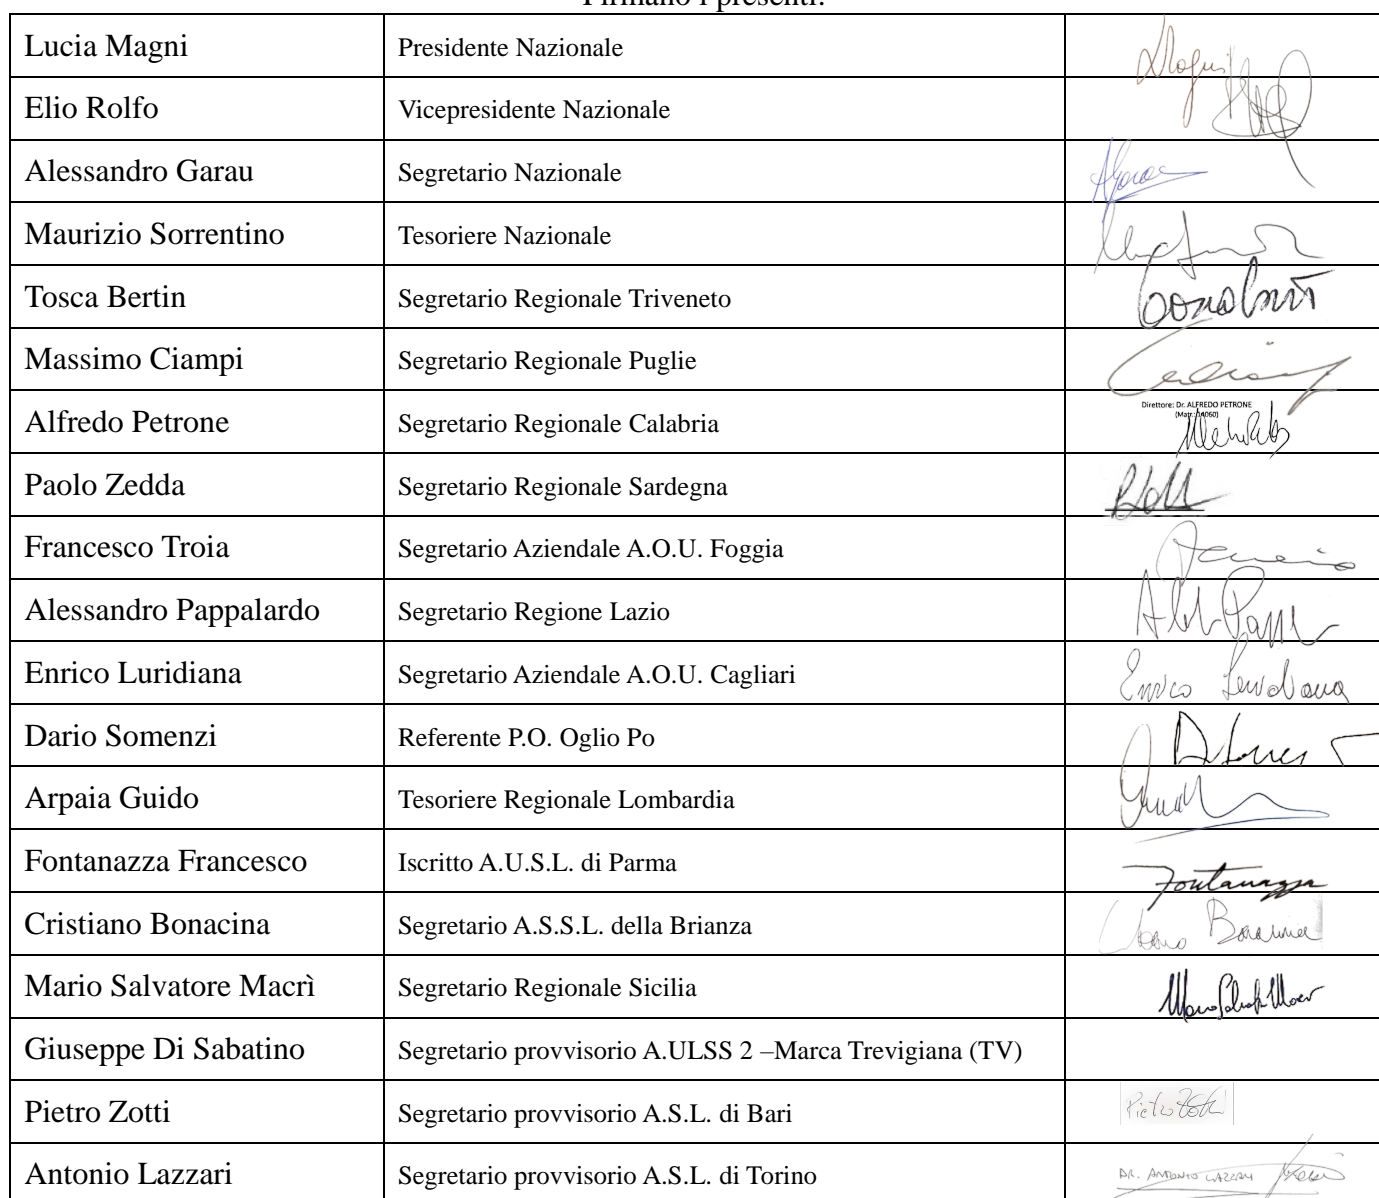 Firmano i presenti:
Lucia Magni Presidente Nazionale Magni
Elio Rolfo Vicepresidente Nazionale
Alessandro Garau Segretario Nazionale
Maurizio Sorrentino Tesoriere Nazionale
Tosca Bertin Segretario Regionale Triveneto
Massimo Ciampi Segretario Regionale Puglie
Direttore: Dr. ALFREDO PETRONE
Alfredo Petrone Segretario Regionale Calabria
Paolo Zedda Segretario Regionale Sardegna
Francesco Troia Segretario Aziendale A.O.U. Foggia
Alessandro Pappalardo Segretario Regione Lazio
Enrico Luridiana Segretario Aziendale A.O.U. Cagliari Enrico Luridiana
Dario Somenzi Referente P.O. Oglio Po
Arpaia Guido Tesoriere Regionale Lombardia
Fontanazza Francesco Iscritto A.U.S.L. di Parma Fontanazza
Cristiano Bonacina Segretario A.S.S.L. della Brianza Bonacina
Mario Salvatore Macrì Segretario Regionale Sicilia
Giuseppe Di Sabatino Segretario provvisorio A.ULSS 2 –Marca Trevigiana (TV)
Pietro Zotti Segretario provvisorio A.S.L. di Bari Pietro Zotti
Antonio Lazzari Segretario provvisorio A.S.L. di Torino DR. ANTONIO LAZZARI